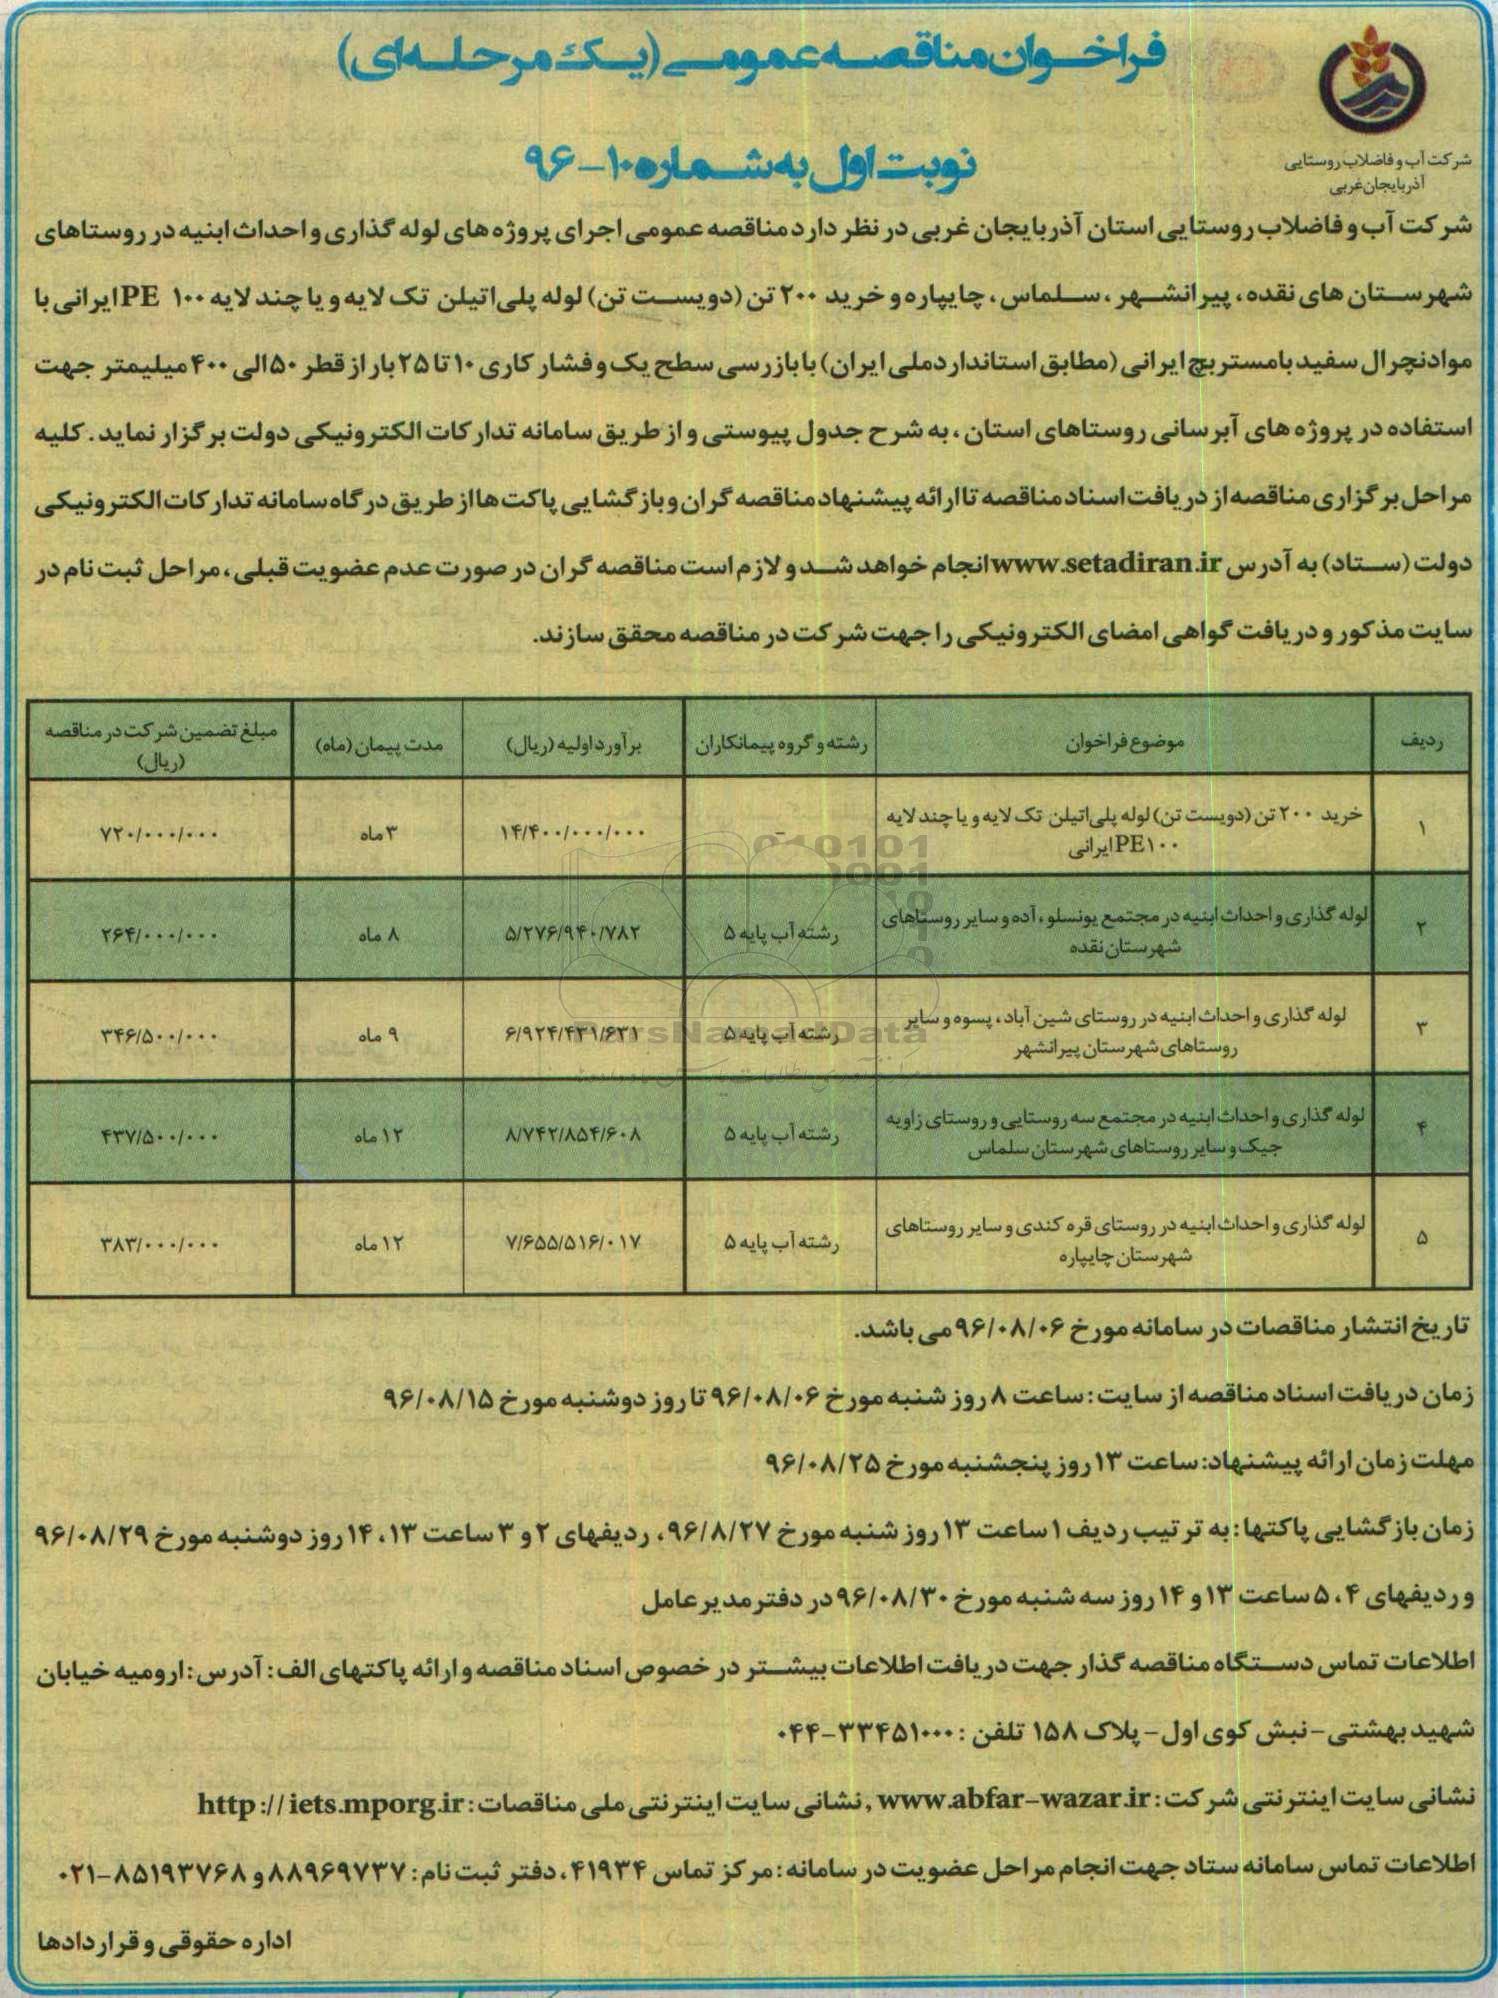 فراخوان مناقصه عمومی (یک مرحله‌ای)
نوبت اول به شماره ۱۰-۹۶
شرکت آب و فاضلاب روستایی
آذربایجان غربی
شرکت آب و فاضلاب روستایی استان آذربایجان غربی در نظر دارد مناقصه عمومی اجرای پروژه های لوله گذاری و احداث ابنیه در روستاهای
شهرستان های نقده، پیرانشهر، سلماس، چایپاره و خرید ۲۰۰ تن (دویست تن) لوله پلی اتیلن تک لایه و یا چند لایه PE ۱۰۰ ایرانی با
مواد نچرال سفید با مستربچ ایرانی (مطابق استاندارد ملی ایران) با بازرسی سطح یک و فشار کاری ۱۰ تا ۲۵ بار از قطر ۵۰ الی ۴۰۰ میلیمتر جهت
استفاده در پروژه های آبرسانی روستاهای استان، به شرح جدول پیوستی و از طریق سامانه تدارکات الکترونیکی دولت برگزار نماید. کلیه
مراحل برگزاری مناقصه از دریافت اسناد مناقصه تا ارائه پیشنهاد مناقصه گران و بازگشایی پاکت ها از طریق درگاه سامانه تدارکات الکترونیکی
دولت (ستاد) به آدرس www.setadiran.ir انجام خواهد شد و لازم است مناقصه گران در صورت عدم عضویت قبلی، مراحل ثبت نام در
سایت مذکور و دریافت گواهی امضای الکترونیکی را جهت شرکت در مناقصه محقق سازند.
ردیف موضوع فراخوان رشته و گروه پیمانکاران برآورد اولیه (ریال) مدت پیمان (ماه) مبلغ تضمین شرکت در مناقصه
(ریال)
۱ خرید ۲۰۰ تن (دویست تن) لوله پلی اتیلن تک لایه و یا چند لایه
PE۱۰۰ ایرانی - ۱۴/۴۰۰/۰۰۰/۰۰۰ ۳ ماه ۷۲۰/۰۰۰/۰۰۰
۲ لوله گذاری و احداث ابنیه در مجتمع یونسلو، آده و سایر روستاهای
شهرستان نقده رشته آب پایه ۵ ۵/۲۷۶/۹۴۰/۷۸۲ ۸ ماه ۲۶۴/۰۰۰/۰۰۰
۳ لوله گذاری و احداث ابنیه در روستای شین آباد، پسوه و سایر
روستاهای شهرستان پیرانشهر رشته آب پایه ۵ ۶/۹۲۴/۴۳۱/۶۳۱ ۹ ماه ۳۴۶/۵۰۰/۰۰۰
۴ لوله گذاری و احداث ابنیه در مجتمع سه روستایی و روستای زاویه
جیک و سایر روستاهای شهرستان سلماس رشته آب پایه ۵ ۸/۷۴۲/۸۵۴/۶۰۸ ۱۲ ماه ۴۳۷/۵۰۰/۰۰۰
۵ لوله گذاری و احداث ابنیه در روستای قره کندی و سایر روستاهای
شهرستان چایپاره رشته آب پایه ۵ ۷/۶۵۵/۵۱۶/۰۱۷ ۱۲ ماه ۳۸۳/۰۰۰/۰۰۰
تاریخ انتشار مناقصات در سامانه مورخ ۹۶/۰۸/۰۶ می باشد.
زمان دریافت اسناد مناقصه از سایت: ساعت ۸ روز شنبه مورخ ۹۶/۰۸/۰۶ تا روز دوشنبه مورخ ۹۶/۰۸/۱۵
مهلت زمان ارائه پیشنهاد: ساعت ۱۳ روز پنجشنبه مورخ ۹۶/۰۸/۲۵
زمان بازگشایی پاکتها: به ترتیب ردیف ۱ ساعت ۱۳ روز شنبه مورخ ۹۶/۸/۲۷، ردیفهای ۲ و ۳ ساعت ۱۳، ۱۴ روز دوشنبه مورخ ۹۶/۰۸/۲۹
و ردیفهای ۴، ۵ ساعت ۱۳ و ۱۴ روز سه شنبه مورخ ۹۶/۰۸/۳۰ در دفتر مدیر عامل
اطلاعات تماس دستگاه مناقصه گذار جهت دریافت اطلاعات بیشتر در خصوص اسناد مناقصه و ارائه پاکتهای الف: آدرس: ارومیه خیابان
شهید بهشتی - نبش کوی اول - پلاک ۱۵۸ تلفن: ۳۳۴۵۱۰۰۰-۰۴۴
نشانی سایت اینترنتی شرکت: www.abfar-wazar.ir , نشانی سایت اینترنتی ملی مناقصات: http://iets.mporg.ir
اطلاعات تماس سامانه ستاد جهت انجام مراحل عضویت در سامانه: مرکز تماس ۴۱۹۳۴، دفتر ثبت نام: ۸۸۹۶۹۷۳۷ و ۸۵۱۹۳۷۶۸-۰۲۱
اداره حقوقی و قراردادها